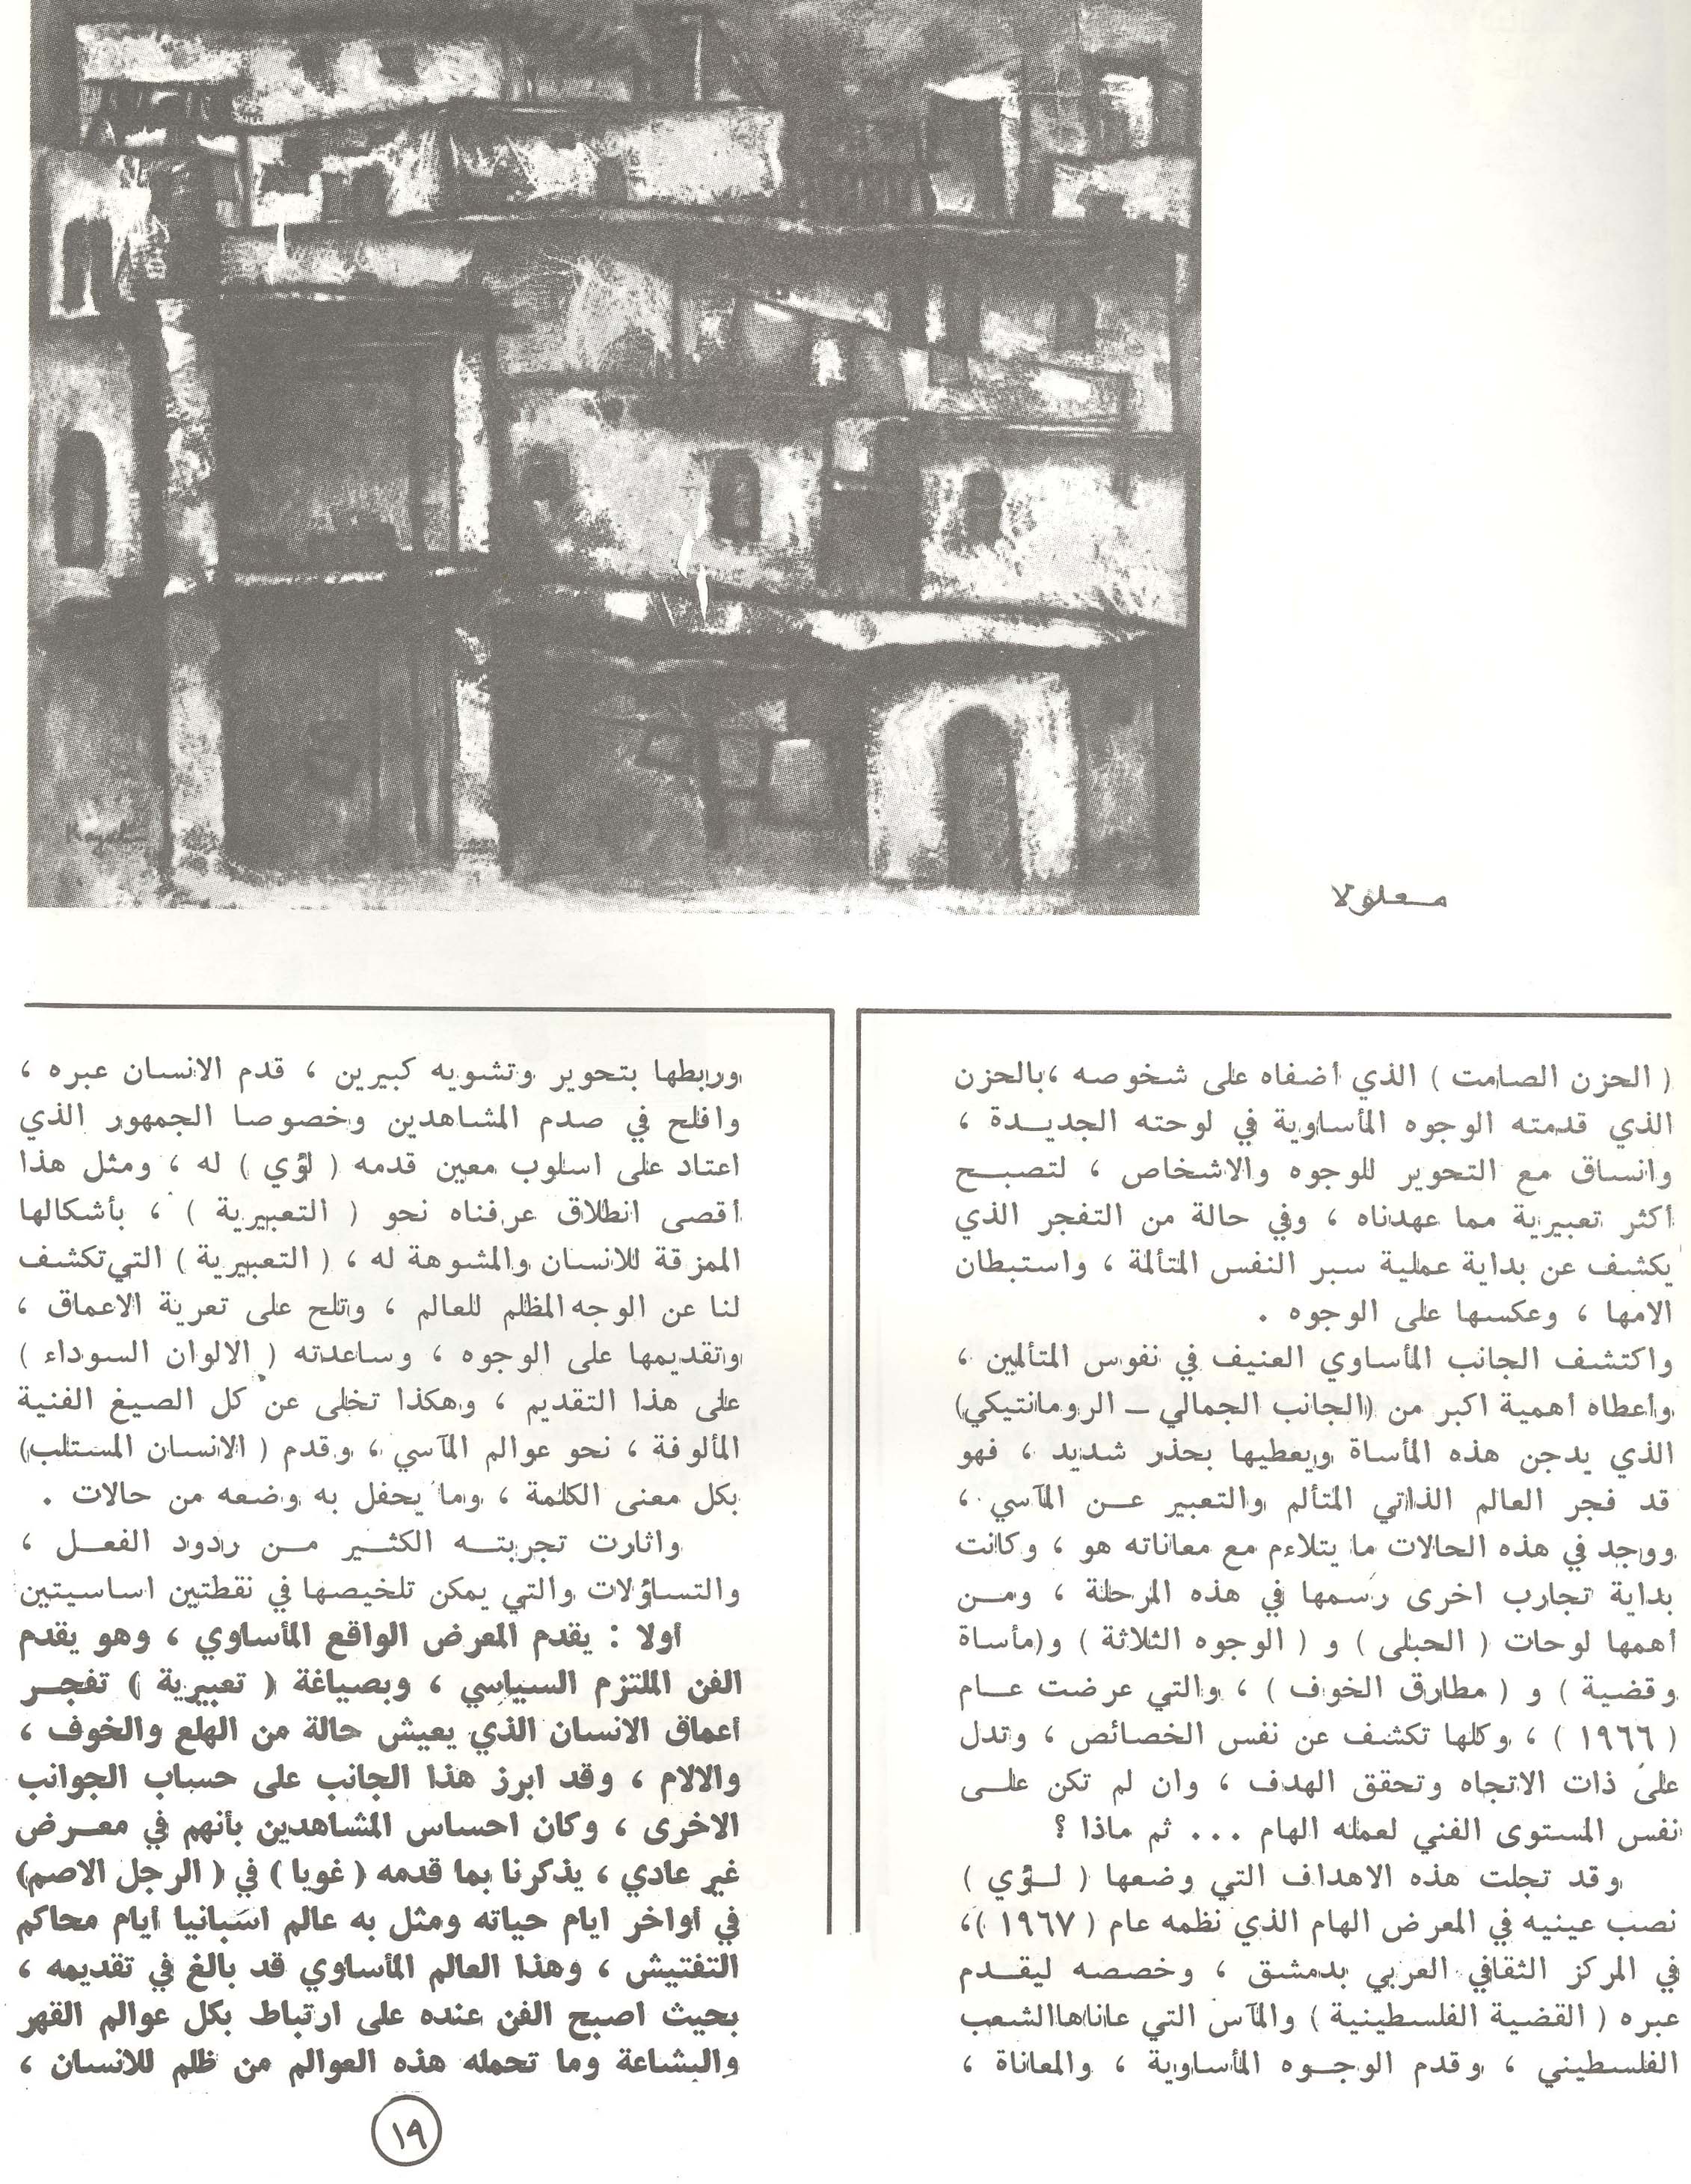 Kayali
معلولا
( الحزن الصامت ) الذي أضفاه على شخوصه ، بالحزن
الذي قدمته الوجوه المأساوية في لوحته الجديـدة ،
وانساق مع التحوير للوجوه والاشخاص ، لتصبـح
أكثر تعبيرية مما عهدناه ، وفي حالة من التفجر الذي
يكشف عن بداية عملية سبر النفس المتألمة ، واستبطان
الامها ، وعكسها على الوجوه .
واكتشف الجانب المأساوي العنيف في نفوس المتألمين ،
وأعطاه أهمية اكبر من (الجانب الجمالي ـ الرومانتيكي)
الذي يدجن هذه المأساة ويعطيها بحذر شديد ، فهو
قد فجر العالم الذاتي المتألم والتعبير عـن المآسي ،
ووجد في هذه الحالات ما يتلاءم مع معاناته هو ، وكانت
بداية تجارب اخرى رسمها في هذه المرحلة ، ومـن
أهمها لوحات ( الحبلى ) و ( الوجوه الثلاثة ) و(مأساة
وقضية ) و ( مطارق الخوف ) ، والتي عرضت عـام
( ١٩٦٦ ) ، وكلها تكشف عن نفس الخصائص ، وتدل
على ذات الاتجاه وتحقق الهدف ، وان لم تكن علـى
نفس المستوى الفني لعمله الهام ... ثم ماذا ؟
وقد تجلت هذه الاهداف التي وضعها ( لـؤي )
نصب عينيه في المعرض الهام الذي نظمه عام ( ١٩٦٧ )،
في المركز الثقافي العربي بدمشق ، وخصصه ليقـدم
عبره ( القضية الفلسطينية ) والمآس التي عاناها الشعب
الفلسطيني ، وقدم الوجـوه المأساوية ، والمعاناة ،
وربطها بتحوير وتشويه كبيرين ، قدم الانسان عبره ،
وافلح في صدم المشاهدين وخصوصا الجمهور الذي
اعتاد على اسلوب معين قدمه ( لؤي ) له ، ومثل هذا
أقصى انطلاق عرفناه نحو ( التعبيرية ) ، بأشكالها
الممزقة للانسان والمشوهة له ، ( التعبيرية ) التي تكشف
لنا عن الوجه المظلم للعالم ، وتلح على تعرية الاعماق ،
وتقديمها على الوجوه ، وساعدته ( الالوان السوداء )
على هذا التقديم ، وهكذا تخلى عن كل الصيغ الفنية
المألوفة ، نحو عوالم المآسي ، وقدم ( الانسان المستلب)
بكل معنى الكلمة ، وما يحفل به وضعه من حالات .
واثارت تجربتـه الكثـير مـن ردود الفعـل ،
والتساؤلات والتي يمكن تلخيصها في نقطتين اساسيتين
أولا : يقدم المعرض الواقع المأساوي ، وهو يقدم
الفن الملتزم السياسي ، وبصياغة ( تعبيرية ) تفجـر
أعماق الانسان الذي يعيش حالة من الهلع والخوف ،
والالام ، وقد ابرز هذا الجانب على حساب الجوانب
الاخرى ، وكان احساس المشاهدين بأنهم في معـرض
غير عادي ، يذكرنا بما قدمه ( غويا ) في ( الرجل الاصم)
في أواخر ايام حياته ومثل به عالم اسبانيا أيام محاكم
التفتيش ، وهذا العالم المأساوي قد بالغ في تقديمه ،
بحيث اصبح الفن عنده على ارتباط بكل عوالم القهر
والبشاعة وما تحمله هذه العوالم من ظلم للانسان ،
١٩